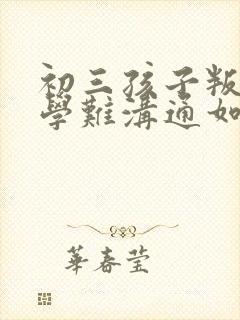 初三孩子叛
學難溝通如
華春莹